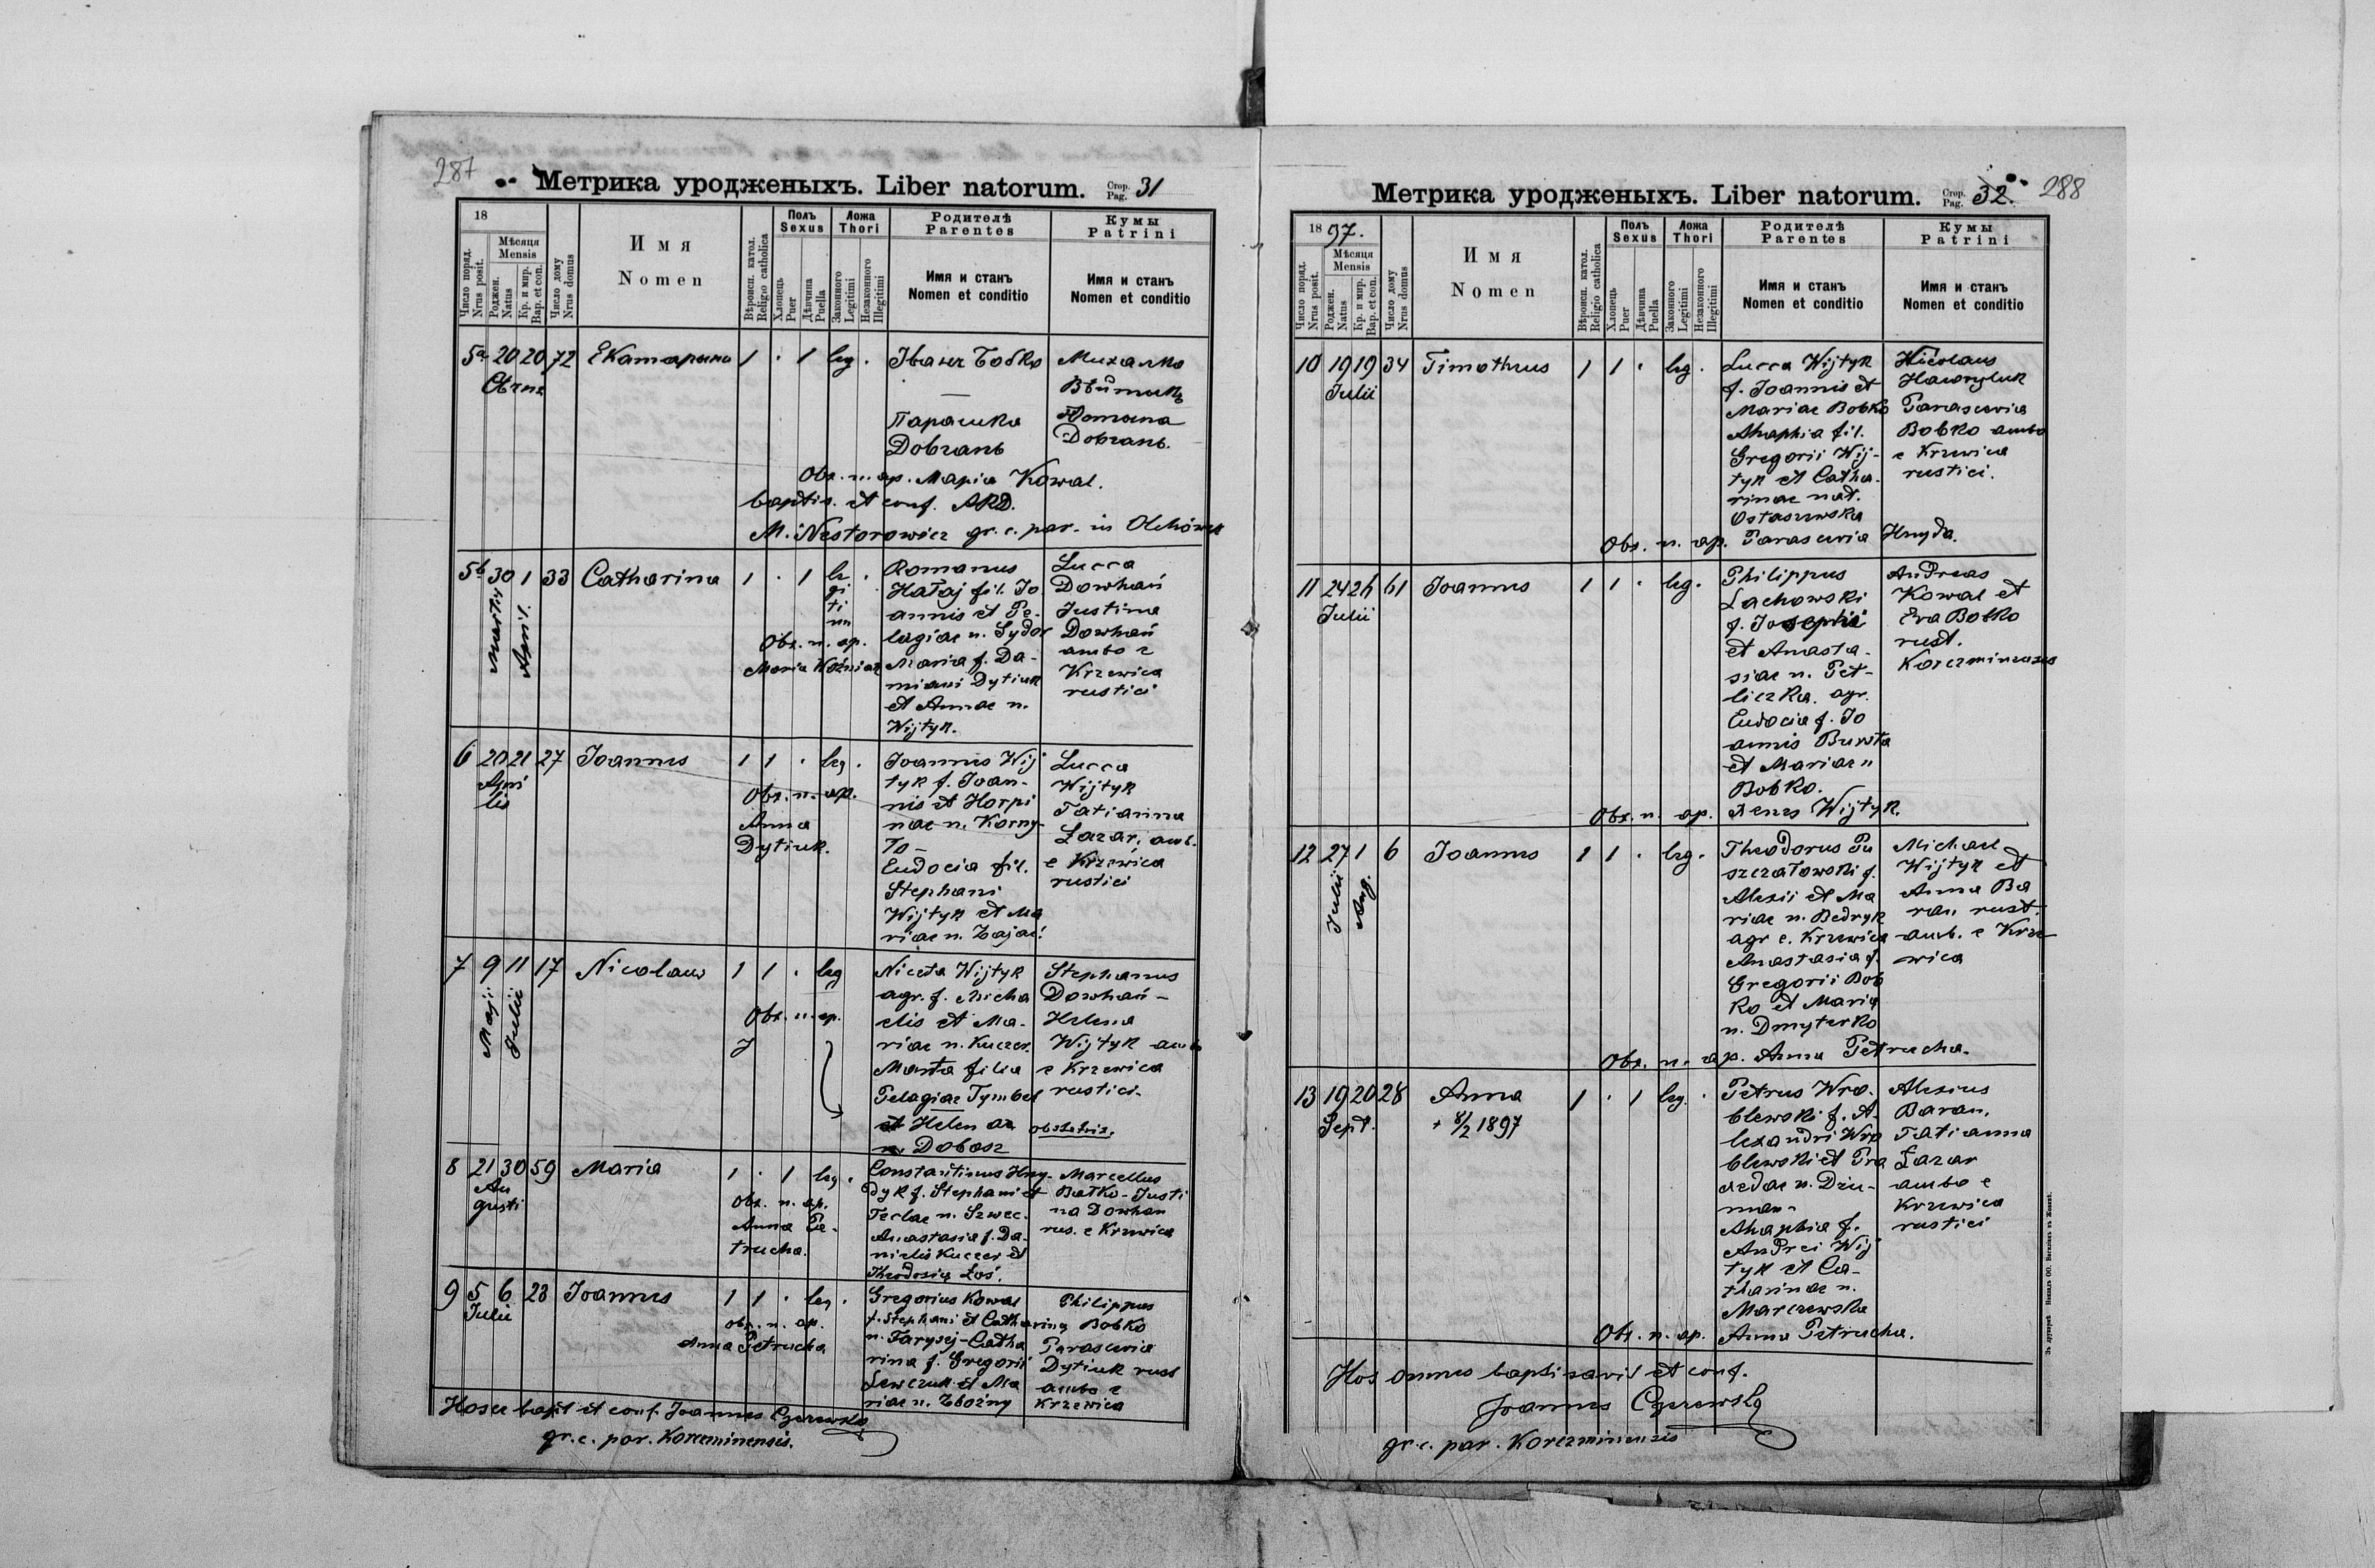 287
Метрика уродженыхъ. Liber natorum. Стор. Pag. 31
18
Число поряд. Nrus posit.
Мѣсяця Mensis
Роджен. Natus
Кр. и мир. Bap. et con.
Число дому Nrus domus
Имя
Nomen
Вѣроисп. катол. Religio catholica
Полъ Sexus
Хлопець Puer
Дѣвчина Puella
Ложа Thori
Законного Legitimi
Незаконного Illegitimi
Родителѣ Parentes
Имя и станъ Nomen et conditio
Кумы Patrini
Имя и станъ Nomen et conditio
5a 20 20 72 Екатарина 1 · 1 leg · Іванъ Бобко
Парашка
Dobrань
Михалко
Dobrань.
Obs. n. ap. Марія Kowal.
baptis. et conf. ARD.
M. Nestorowicz gr. c. par. in
5b 30 1 33 Catharina 1 · 1 le gi ti m ·
Martii April.
Romanus
Hałaj fil. Jo
annis et Pe-
lagiae n. Sydor
Maria f. Da-
miani Dytiuk
et Annae n.
Wijtyk.
Lucca
Dowhań
Justina
Dowhań
ambo e
Krzewica
rustici
Obs. n. ap.
Maria Woźniak
6 20 21 27 Joannes 1 1 · leg ·
Apri
lis
Joannes Wij
tyk f. Joan-
nis et Horpi
nae n. Korny-
ło-
Eudocia fil.
Stephani
Wijtyk et Ma
riae n. Zająć.
Lucca
Wijtyk
Tatianna
Łazar, amb.
e Krzewica
rustici
Obs. n. ap.
Anna
Dytiuk.
7 9 11 17 Nicolaus 1 1 · leg
Maji Julii
Niceta Wijtyk
agr. f. Micha
elis et Ma-
riae n. Kuczer.
Marta filia
Pelagiae Tymbel
et Helenae
n. Dobosz
Stephanus
Dowhań -
Helena
Wijtyk ambo
e Krzewica
rustici.
obstetrix.
Obs. n. ap.
8 21 30 59 Maria 1 · 1 leg ·
Au
gusti
Constantinus Hny-
dyk f. Stephani et
Teclae n. Szwec.
Anastasia f. Da-
nielis Kuczer et
Theodosia Łoś.
Marcellus
Bałko - Justi
na Dowhan
rus. e Krzewica
Obs. n. ap.
Anna Pe-
trucha.
9 5 6 23 Joannes 1 1 · leg ·
Julii
Gregorius Kowal
f. Stephani et Catharina
n. Farysej - Catha
rina f. Gregorii
Lewczuk et Ma
riae n. Zbożny
Philippus
Bobko
Parascevia
Dytiuk rust
ambo e
Krzewica
obs. n. ap.
Anna Petrucha
Hosce bapt et conf. Joannes
gr. c. par. Korczminensis.
Метрика уродженыхъ. Liber natorum. Стор. Pag. 32. 288
1897.
Число поряд. Nrus posit.
Мѣсяця Mensis
Роджен. Natus
Кр. и мир. Bap. et con.
Число дому Nrus domus
Имя
Nomen
Вѣроисп. катол. Religio catholica
Полъ Sexus
Хлопець Puer
Дѣвчина Puella
Ложа Thori
Законного Legitimi
Незаконного Illegitimi
Родителѣ Parentes
Имя и станъ Nomen et conditio
Кумы Patrini
Имя и станъ Nomen et conditio
10 19 19 34 Timotheus 1 1 · leg ·
Julii
Lucca Wijtyk
f. Joannis et
Mariae Bobko
Ahaphia fil.
Gregorii Wij-
tyk et Catha-
rinae nat.
Ostaszewska
Nicolaus
Hawryluk
Parascevia
Bobko ambo
e Krzewica
rustici.
Obs. n. ap. Parascevia Hnyda.
11 24 26 61 Joannes 1 1 · leg ·
Julii
Philippus
Lachowski
f. Josephi
et Anasta-
siae n. Pet-
liczka. agr.
Eudocia f. Jo
annis Buwła
et Mariae n
Bobko.
Andreas
Kowal et
Eva Bobko
rust.
Obs. n. ap. Xenes Wijtyk.
12 27 1 6 Joannes 1 1 · leg ·
Julii Aug.
Theodorus Pu
szczałowski f.
Alexii et Ma
riae n. Bedryk
agr e. Krzewica
Anastasia f.
Gregorii Bob
ko et Maria
n. Dmyterko
Michael
Wijtyk et
Anna Ba
ran rust.
amb. e Krze
wica
Obs. n. ap. Anna Petrucha.
13 19 20 28 Anna 1 · 1 leg. ·
Sept.
+ 8/2 1897
Petrus Wro-
blewski f. A-
lexandri Wro
blewski et Pra
xedae n. Dziu-
man -
Ahaphia f.
Andrei Wij
tyk et Ca-
tharinae n.
Marczewska
Alexius
Baran,
Tatianna
Łazar
ambo e
Krzewica
rustici
Obs. n. ap. Anna Petrucha.
Hos omnes baptisavit et conf.
Joannes
gr. c. par. Korczminensis